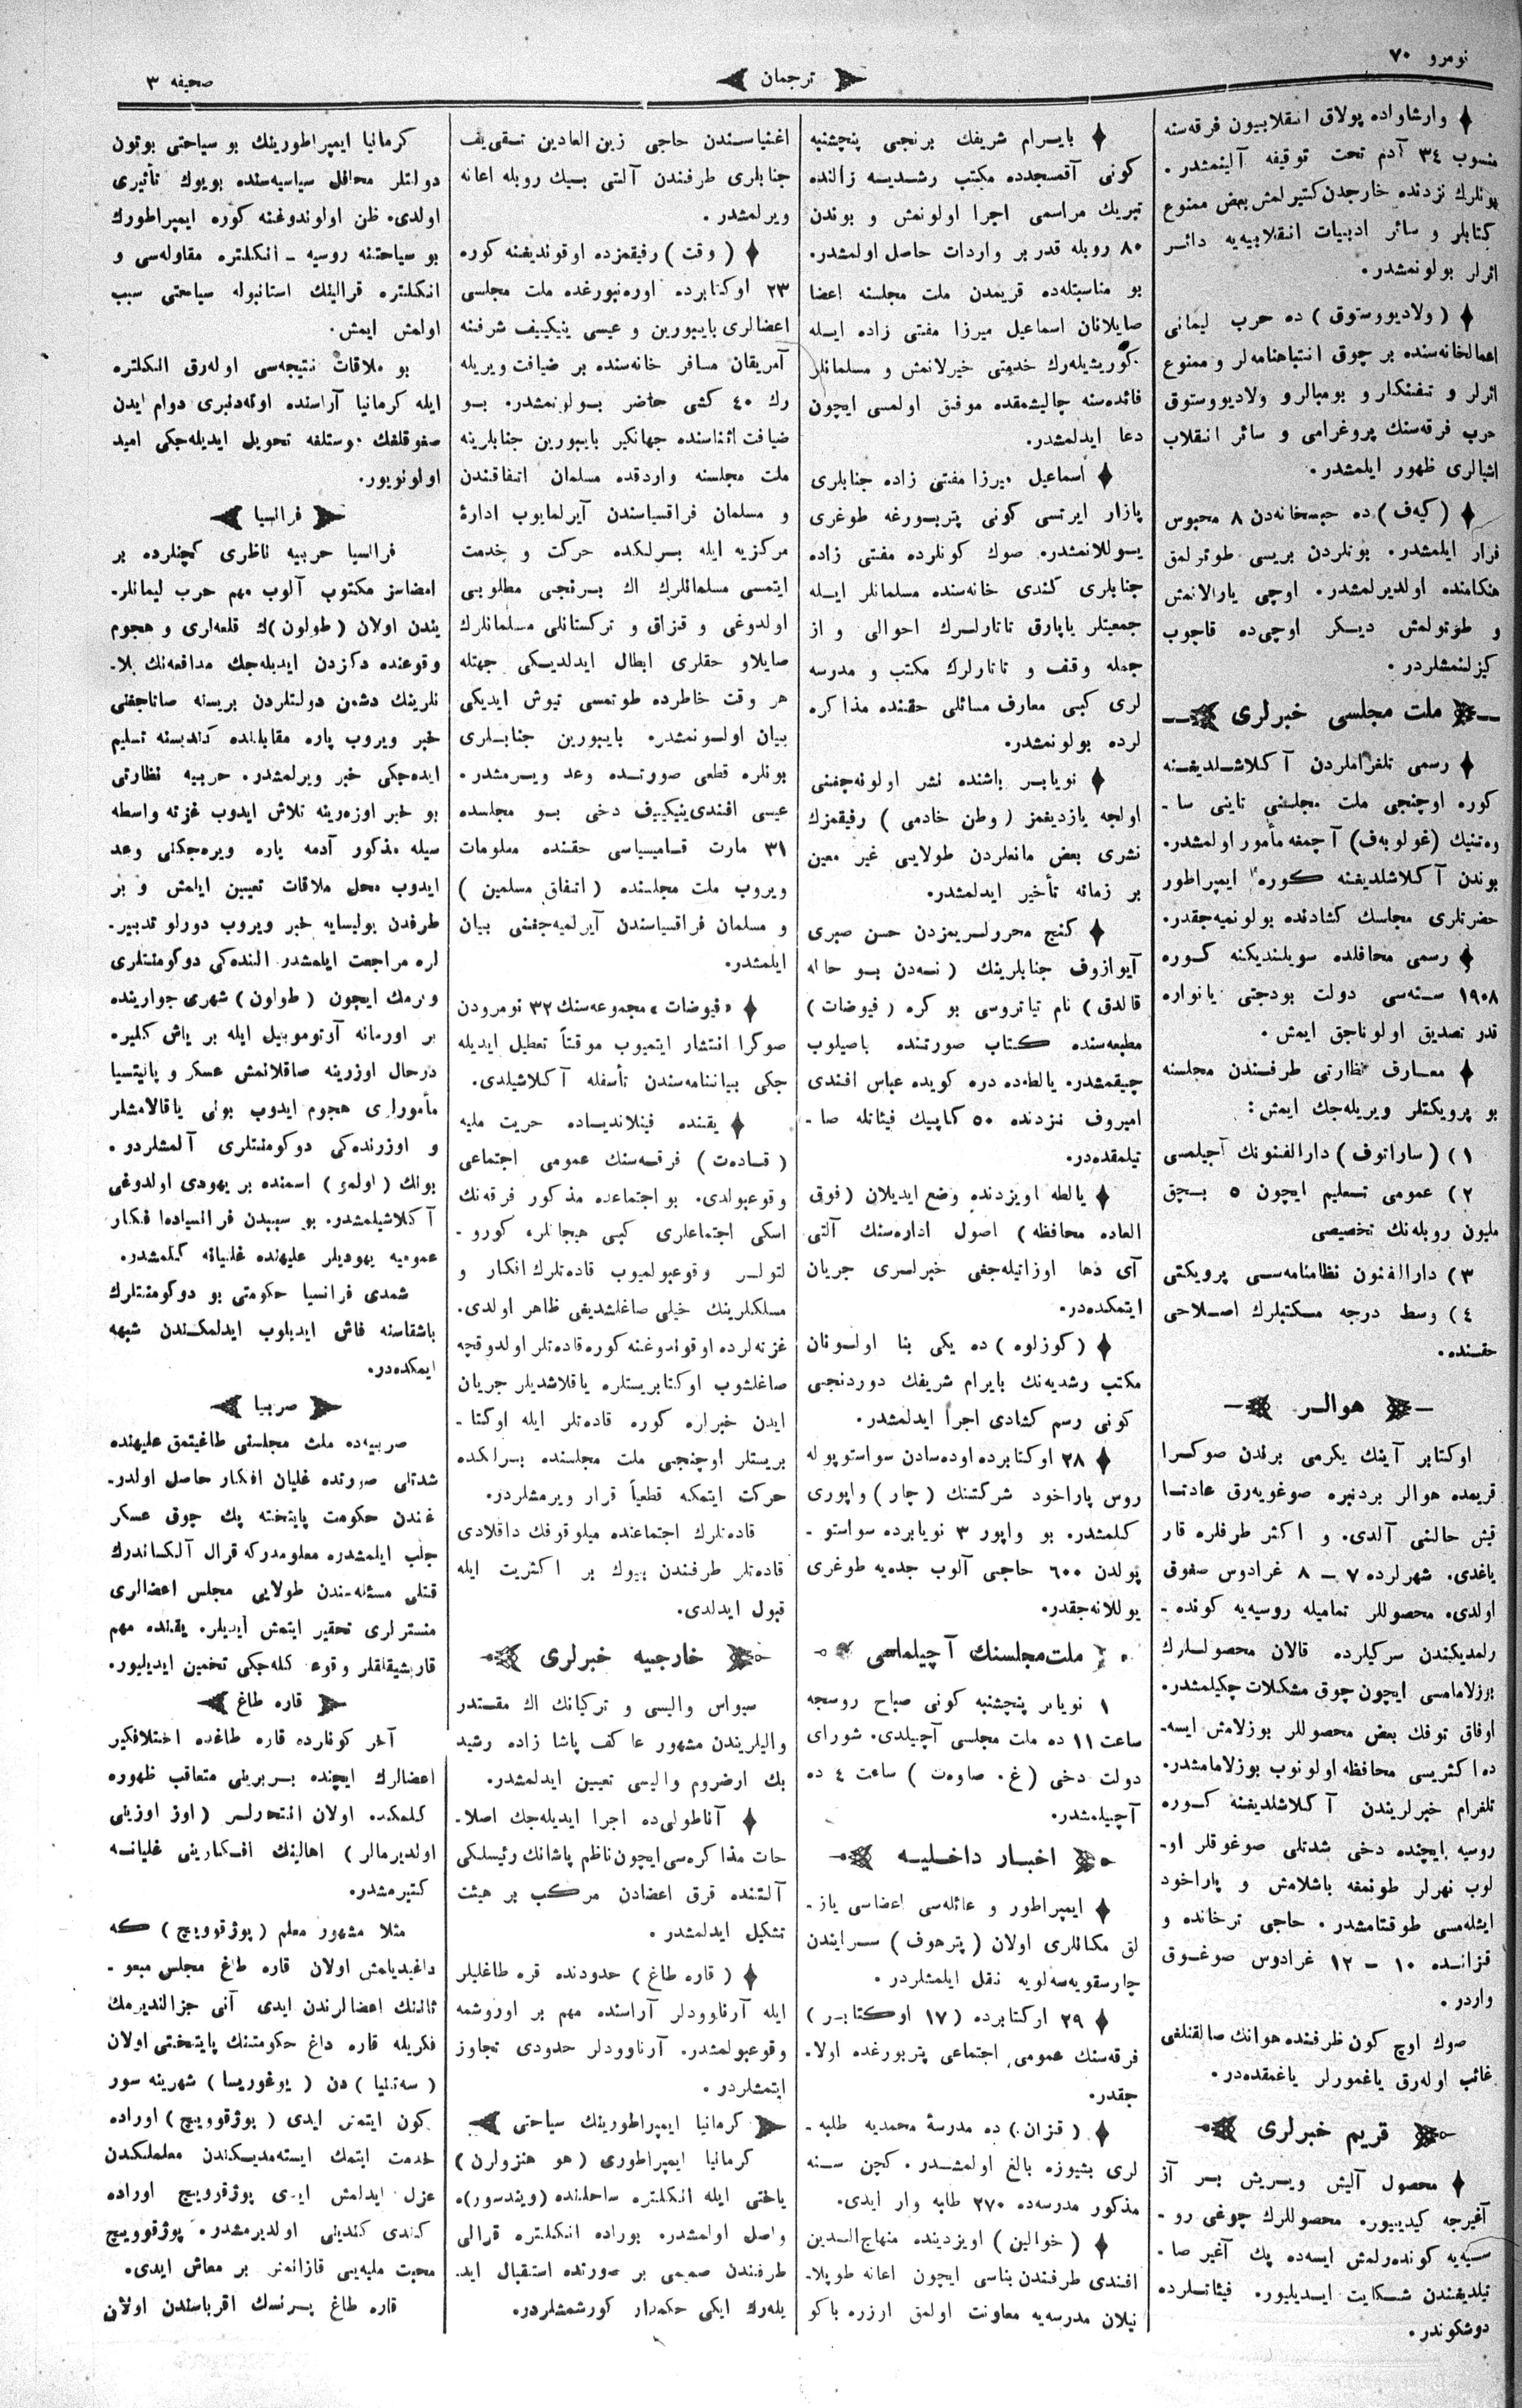 نومرو ٧٠
ترجمان
صحیفه ٣
وارشاواده پولاق انقلابیون فرقه‌سنه
منسوب ٣٤ آدم تحت توقیفه آلینمشدر.
بونلرك نزدنده خارجدن كتیرلمش بعض ممنوع
كتابلر و سائر ادبیات انقلابیه‌یه دائر
اثرلر بولونمشدر.
(ولادیووستوق) ده حرب لیمانی
اعمالخانه‌سنده بر چوق انتباهنامه‌لر و ممنوع
اثرلر و تفنكلر و بومبالر و ولادیووستوق
حرب فرقه‌سنك پروغرامی و سائر انقلاب
اشیالری ظهور ایلمشدر.
(كیه‌ف) ده حبسخانه‌دن ٨ محبوس
فرار ایلمشدر. بونلردن بریسی طوتولمق
هنكامنده اولدیرلمشدر. اوچی یارالانمش
و طوتولمش دیكر اوچی‌ده قاچوب
كیزلنمشلردر.
ملت مجلسی خبرلری
رسمی تلغرافلردن آكلاشلدیغنه
كوره اوچنجی ملت مجلسنی تاینی سا-
وه‌تنیك (غولوبه‌ف) آچمغه مأمور اولمشدر.
بوندن آكلاشلدیغنه كوره ایمپراطور
حضرتلری مجلسك كشادنده بولونمیه‌جقدر.
رسمی محافلده سویلندیكنه كوره
١٩٠٨ سنه‌سی دولت بودجتی یانواره
قدر تصدیق اولوناجق ایمش.
معارف نظارتی طرفندن مجلسنه
بو پرویكتلر ویریله‌جك ایمش:
١) (ساراتوف) دارالفنونك آچیلمسی
٢) عمومی تعلیم ایچون ٥ بچق
ملیون روبله‌نك تخصیصی
٣) دارالفنون نظامنامه‌سی پرویكتی
٤) وسط درجه مكتبلرك اصلاحی
حقنده.
هوالر
اوكتابر آینك یكرمی برندن صوكرا
قریمده هوالر بردنبره صوغویه‌رق عادتا
قیش حالنی آلدی. و اكثر طرفلره قار
یاغدی. شهرلرده ٧ – ٨ غرادوس صغوق
اولدی. محصوللر تمامیله روسیه‌یه كونده-
رلمدیكندن سركیلرده قالان محصوللرك
بوزلامامسی ایچون چوق مشكلات چكیلمشدر.
اوفاق توفك بعض محصوللر بوزلامش ایسه-
ده اكثریسی محافظه اولونوب بوزلامامشدر.
تلغرام خبرلریندن آكلاشلدیغنه كوره
روسیه ایچنده دخی شدتلی صوغوقلر او-
لوب نهرلر طونمغه باشلامش و پاراخود
ایشله‌مسی طوقتامشدر. حاجی ترخانده و
قزانده ١٠ – ١٢ غرادوس صوغوق
واردر.
صوك اوچ كون ظرفنده هوانك صالقنلغی
غائب اوله‌رق یاغمورلر یاغمقده‌در.
قریم خبرلری
محصول آلیش ویریش بر آز
آغیرجه كیدییور. محصوللرك چوغی رو-
سیه‌یه كونده‌رلمش ایسه‌ده پك آغیر صا-
تیلدیغندن شكایت ایدیلیور. فیئاتلرده
دوشكوندر.
بایرام شریفك برنجی پنجشنبه
كونی آقمسجدده مكتب رشدیه زالنده
تبریك مراسمی اجرا اولونمش و بوندن
٨٠ روبله قدر بر واردات حاصل اولمشدر.
بو مناسبتله‌ده قریمدن ملت مجلسنه اعضا
صایلانان اسماعیل میرزا مفتی زاده ایله
كوریشیله‌رك خدمتی خیرلانمش و مسلمانلر
فائده‌سنه چالیشمقده موفق اولمسی ایچون
دعا ایدلمشدر.
اسماعیل میرزا مفتی زاده جنابلری
پازار ایرتسی كونی پتربورغه طوغری
یوللانمشدر. صوك كونلرده مفتی زاده
جنابلری كندی خانه‌سنده مسلمانلر ایله
جمعیتلر یاپارق تاتارلرك احوالی و از
جمله وقف و تاتارلرك مكتب و مدرسه
لری كبی معارف مسائلی حقنده مذاكره
لرده بولونمشدر.
نویابر باشنده نشر اولونه‌جغنی
اولجه یازدیغمز (وطن خادمی) رفیقمزك
نشری بعض مانعلردن طولایی غیر معین
بر زمانه تأخیر ایدلمشدر.
كنج محررلریمزدن حسن صبری
آیوازوف جنابلرینك (نه‌دن بو حاله
قالدق) نام تیاتروسی بو كره (فیوضات)
مطبعه‌سنده كتاب صورتنده باصیلوب
چیقمشدر. یالطه‌ده دره كویده عباس افندی
امیروف نزدنده ٥٠ كاپیك فیئاتله صا-
تیلمقده‌در.
یالطه اویزدنده وضع ایدیلان (فوق
العاده محافظه) اصول اداره‌سنك آلتی
آی دها اوزاتیله‌جغی خبرلری جریان
ایتمكده‌در.
(كوزلوه) ده یكی بنا اولونان
مكتب رشدیه‌نك بایرام شریفك دوردنجی
كونی رسم كشادی اجرا ایدلمشدر.
٢٨ اوكتابرده اوده‌سادن سواستوپوله
روس پاراخود شركتنك (چار) واپوری
كلمشدر. بو واپور ٣ نویابرده سواستو-
پولدن ٦٠٠ حاجی آلوب جده‌یه طوغری
یوللانه‌جقدر.
ملت مجلسنك آچیلماسی
١ نویابر پنچشنبه كونی صباح روسجه
ساعت ١١ ده ملت مجلسی آچیلدی. شورای
دولت دخی (غ. صاوه‌ت) ساعت ٤ ده
آچیلمشدر.
اخبار داخلیه
ایمپراطور و عائله‌سی اعضاسی یاز-
لق مكانلری اولان (پترهوف) سرایندن
چارسقویه‌سه‌لویه نقل ایلمشلردر.
٢٩ اوكتابرده (١٧ اوكتابر)
فرقه‌سنك عمومی اجتماعی پتربورغده اولا-
جقدر.
(قزان) ده مدرسهٔ محمدیه طلبه-
لری بشیوزه بالغ اولمشدر. كچن سنه
مذكور مدرسه‌ده ٢٧٠ طلبه وار ایدی.
(خوالین) اویزدینده منهاج‌الدین
افندی طرفندن بناسی ایچون اعانه طوپلا-
نیلان مدرسه‌یه معاونت اولمق اوزره باكو
اغنیاسندن حاجی زین العادین تقی‌یف
جنابلری طرفندن آلتی بیك روبله اعانه
ویرلمشدر.
(وقت) رفیقمزده اوقوندیغنه كوره
٢٣ اوكتابرده اوره‌نبورغده ملت مجلسی
اعضالری بایبورین و عیسی ینیكییف شرفنه
آمریقان مسافر خانه‌سنده بر ضیافت ویریله
رك ٤٠ كشی حاضر بولونمشدر. بو
ضیافت اثناسنده جهانكیر بایبورین جنابلرینه
ملت مجلسنه واردقده مسلمان اتفاقندن
و مسلمان فراقسیاسندن آیرلمایوب ادارهٔ
مركزیه ایله برلكده حركت و خدمت
ایتمسی مسلمانلرك اك برنجی مطلوبی
اولدوغی و قزاق و تركستانلی مسلمانلرك
صایلاو حقلری ابطال ایدلدیكی جهتله
هر وقت خاطرده طوتمسی تیوش ایدیكی
بیان اولونمشدر. بایبورین جنابلری
بونلره قطعی صورتده وعد ویرمشدر.
عیسی افندی ینیكییف دخی بو مجلسده
٣١ مارت قامیسیاسی حقنده معلومات
ویروب ملت مجلسنده (اتفاق مسلمین)
و مسلمان فراقسیاسندن آیرلمیه‌جغنی بیان
ایلمشدر.
«فیوضات» مجموعه‌سنك ٣٢ نومرودن
صوكرا انتشار ایتمیوب موقتاً تعطیل ایدیله
جكی بیاننامه‌سندن تأسفله آكلاشیلدی.
یقنده فینلاندیاده حریت ملیه
(قاده‌ت) فرقه‌سنك عمومی اجتماعی
وقوعبولدی. بو اجتماعده مذكور فرقه‌نك
اسكی اجتماعلری كبی هیجانلر، كورو-
لتولر وقوعبولمیوب قاده‌تلرك افكار و
مسلكلرینك خیلی صاغلشدیغی ظاهر اولدی.
غزته‌لرده اوقوندوغنه كوره قاده‌تلر اولدوقچه
صاغلشوب اوكتابریستلره یاقلاشدیلر جریان
ایدن خبرلره كوره قاده‌تلر ایله اوكتا-
بریستلر اوچنجی ملت مجلسنده برلكده
حركت ایتمكه قطعیاً قرار ویرمشلردر.
قاده‌تلرك اجتماعنده میلوقوفك داقلادی
قاده‌تلر طرفندن بیوك بر اكثریت ایله
قبول ایدلدی.
خارجیه خبرلری
سیواس والیسی و تركیانك اك مقتدر
والیلریندن مشهور عاكف پاشا زاده رشید
بك ارضروم والیسی تعیین ایدلمشدر.
آناطولی‌ده اجرا ایدیله‌جك اصلا-
حات مذاكره‌سی ایچون ناظم پاشانك رئیسلكی
آلتنده قرق اعضادن مركب بر هیئت
تشكیل ایدلمشدر.
(قاره طاغ) حدودنده قره طاغلیلر
ایله آرناوودلر آراسنده مهم بر اوروشمه
وقوعبولمشدر. آرناوودلر حدودی تجاوز
ایتمشلردر.
كرمانیا ایمپراطورینك سیاحتی
كرمانیا ایمپراطوری (هو هنزولرن)
یاختی ایله انكلتره ساحلنده (ویندسور)ه
واصل اولمشدر. بوراده انكلتره قرالی
طرفندن صمیمی بر صورتده استقبال اید-
یله‌رك ایكی حكمدار كورشمشلردر.
كرمانیا ایمپراطورینك بو سیاحتی بوتون
دولتلر محافل سیاسیه‌سنده بویوك تأثیری
اولدی. ظن اولوندوغنه كوره ایمپراطورك
بو سیاحتنه روسیه – انكلتره مقاوله‌سی و
انكلتره قرالینك استانبوله سیاحتی سبب
اولمش ایمش.
بو ملاقات نتیجه‌سی اوله‌رق انكلتره
ایله كرمانیا آراسنده اوته‌دنبری دوام ایدن
صغوقلغك دوستلغه تحویل ایدیله‌جكی امید
اولونویور.
فرانسیا
فرانسیا حربیه ناظری كچنلرده بر
امضاسز مكتوب آلوب مهم حرب لیمانلر-
یندن اولان (طولون)ك قلعه‌لری و هجوم
وقوعنده دكزدن ایدیله‌جك مدافعه‌نك پلا-
نلرینك دشمن دولتلردن بریسنه صاتاجغنی
خبر ویروب پاره مقابلنده كندیسنه تسلیم
ایده‌جكی خبر ویرلمشدر. حربیه نظارتی
بو خبر اوزه‌رینه تلاش ایدوب غزته واسطه
سیله مذكور آدمه پاره ویره‌جكنی وعد
ایدوب محل ملاقات تعیین ایلمش و بر
طرفدن پولیسایه خبر ویروب دورلو تدبیر-
لره مراجعت ایلمشدر النده‌كی دوكومنتلری
ویرمك ایچون (طولون) شهری جوارینده
بر اورمانه آوتوموبیل ایله بر یاش كلیر.
درحال اوزرینه صاقلانمش عسكر و پالیتسیا
مأمورلری هجوم ایدوب بونی یاقالامشلر
و اوزرنده‌كی دوكومنتلری آلمشلردر.
بونك (اولمو) اسمنده بر یهودی اولدوغی
آكلاشیلمشدر. بو سببدن فرانسیاده افكار
عمومیه یهودیلر علیهنده غلیانه كلمشدر.
شمدی فرانسیا حكومتی بو دوكومنتلرك
باشقاسنه فاش ایدیلوب ایدلمكندن شبهه
ایمكده‌در.
صربیا
صربیه‌ده ملت مجلسنی طاغیتمق علیهنده
شدتلی صورتده غلیان افكار حاصل اولدو-
غندن حكومت پایتخته پك چوق عسكر
جلب ایلمشدر. معلومدركه قرال آلكساندرك
قتلی مسئله‌سندن طولایی مجلس اعضالری
منسترلری تحقیر ایتمش ایدیلر. یقنده مهم
قاریشیقلقلر وقوعه كله‌جكی تخمین ایدیلیور.
قاره طاغ
آخر كونلرده قاره طاغده اختلافكیر
اعضالرك ایچنده بربرینی متعاقب ظهوره
كلمكده اولان انتحرلر (اوز اوزینی
اولدیرمالر) اهالینك افكارینی غلیانه
كتیرمشدر.
مثلا مشهور معلم (پوژقوویچ) كه
داغیدیلمش اولان قاره طاغ مجلس مبعو-
ثاننك اعضالرندن ایدی آنی جزالندیرمك
فكریله قاره داغ حكومتنك پایتختی اولان
(سه‌تنیا) دن (یوغوریسا) شهرینه سور
كون ایتمش ایدی (پوژقوویچ) اوراده
خدمت ایتمك ایسته‌مدیكندن معلملكدن
عزل ایدلمش ایدی پوژقوویچ اوراده
كندی كندینی اولدیرمشدر. پوژقوویچ
محبت ملیه‌یی قازانمش بر معاش ایدی.
قاره طاغ پرنسك اقرباسندن اولان